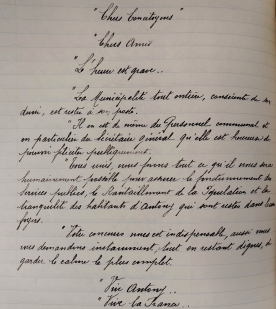 "Chers Concitoyens"
"Chers Amis
"L'heure est grave..
"La Municipalité tout entière, consciente de son
devoir, est restée à son poste.
"Il en est de même du Personnel communal et
en particulier du Secrétaire général qu'elle est heureuse de
pouvoir féliciter publiquement.
"Tous unis, nous ferons tout ce qu'il nous sera
humainement possible pour assurer le fonctionnement des
services publics, le Ravitaillement de la Population et la
tranquillité des habitants d'Antony qui sont restés dans leurs
foyers.
"Votre concours nous est indispensable, aussi nous
vous demandons instamment, tout en restant dignes, de
garder le calme le plus complet.
"Vive Antony..
"Vive la France..